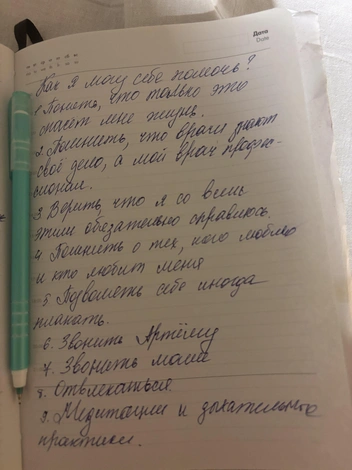 Дата
Date
Как я могу себе помочь?
1 Понять, что только это
спасёт мне жизнь.
2. Помнить, что врачи знают
своё дело, а мой врач профес-
сионал.
3 Верить, что я со всем
этим обязательно справлюсь.
4 Помнить о тех, кого люблю
и кто любит меня
5 Позволять себе иногда
плакать.
6. Звонить Артёму
7. Звонить маме
8. Отвлекаться
9. Медитации и дыхательные
практики.